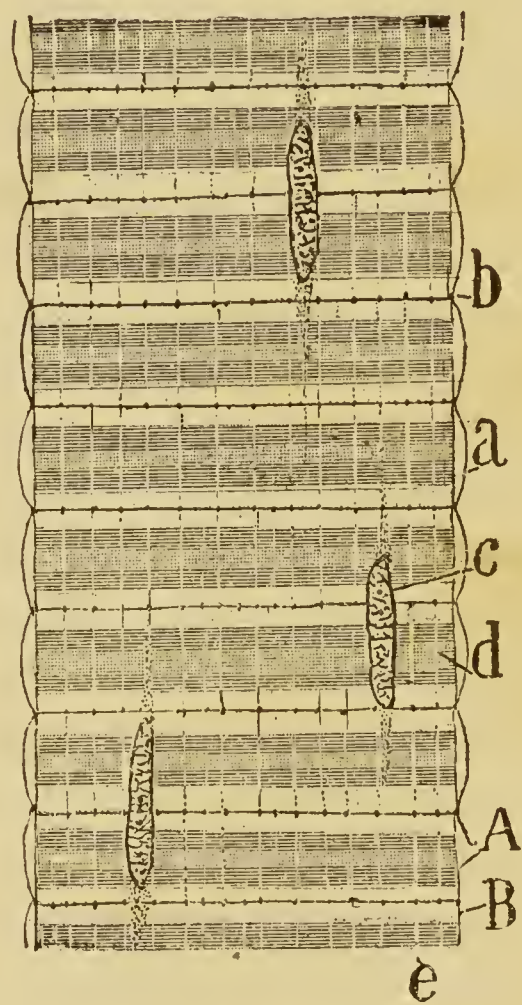 b
a
c
d
A
B
è